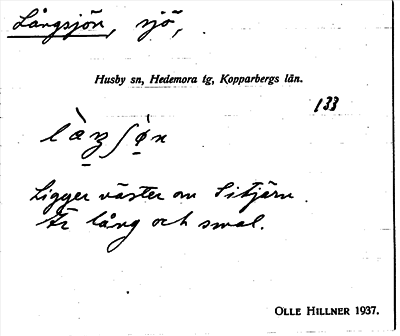 Långsjön, sjö,
Husby sn, Hedemora tg, Kopparbergs län.
133
Ligger väster om Sitjärn.
Är lång och smal.
OLLE HILLNER 1937.